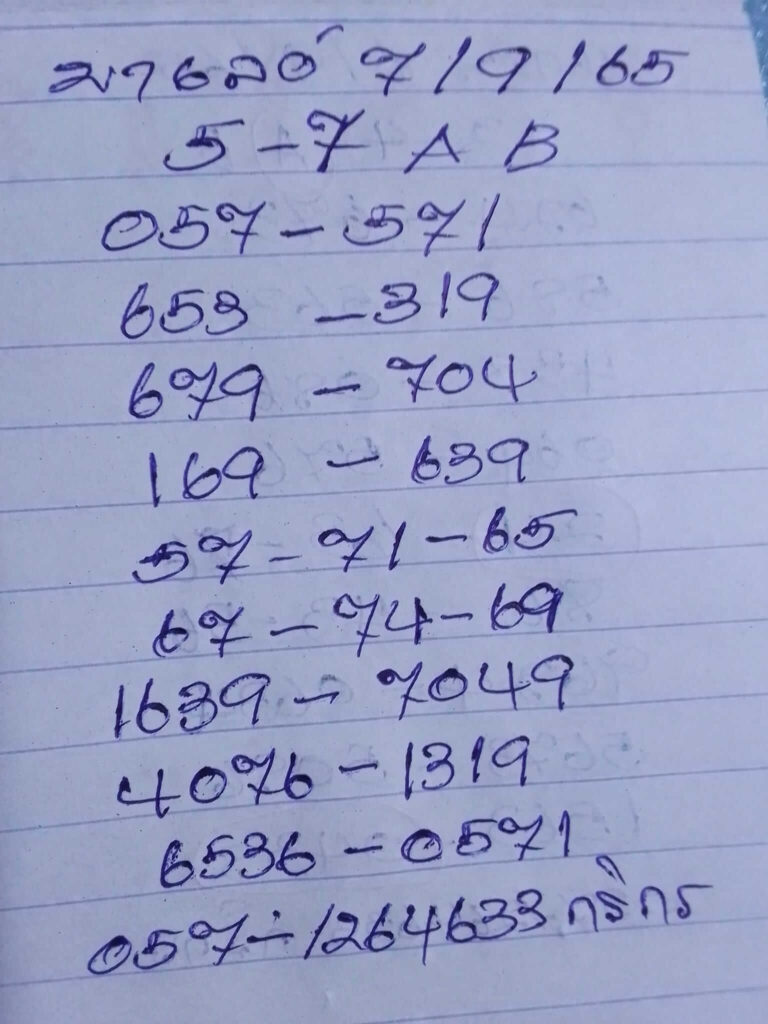 มาเลย์ 7/9/65
5-7 A B
057-571
653-319
679-704
169-639
57-71-65
67-74-69
1639-7049
4076-1319
6536-0571
057-1264633